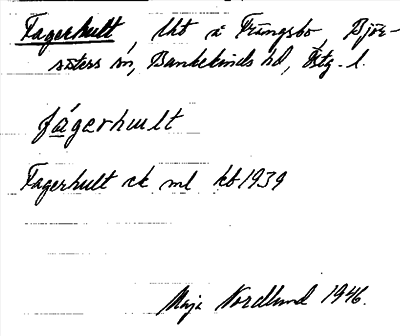 Fagerhult, lht å Frängsbo, Björ-
säters sn, Bankekinds hd, Östg. l.
fágerhult
Fagerhult ek ml kb 1939
Maja Nordlund 1946.